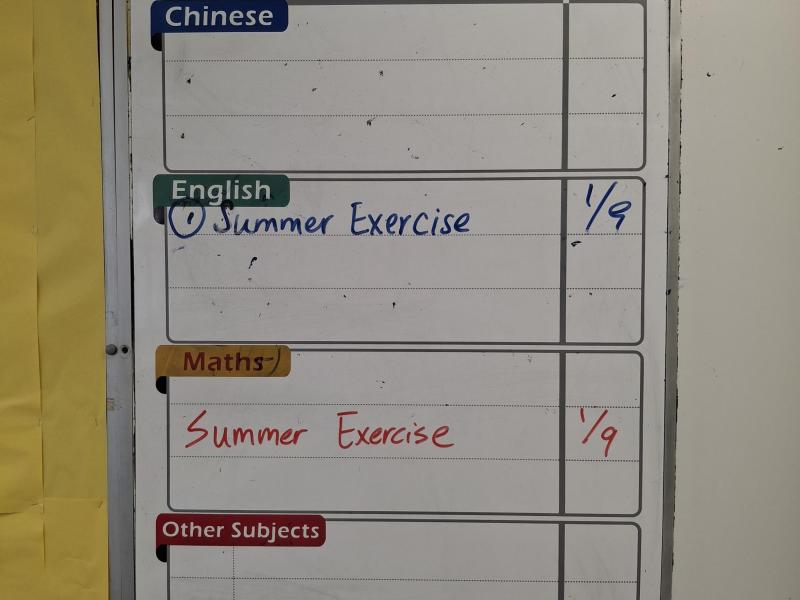 Chinese
English
① Summer Exercise 1/9
Maths
Summer Exercise 1/9
Other Subjects